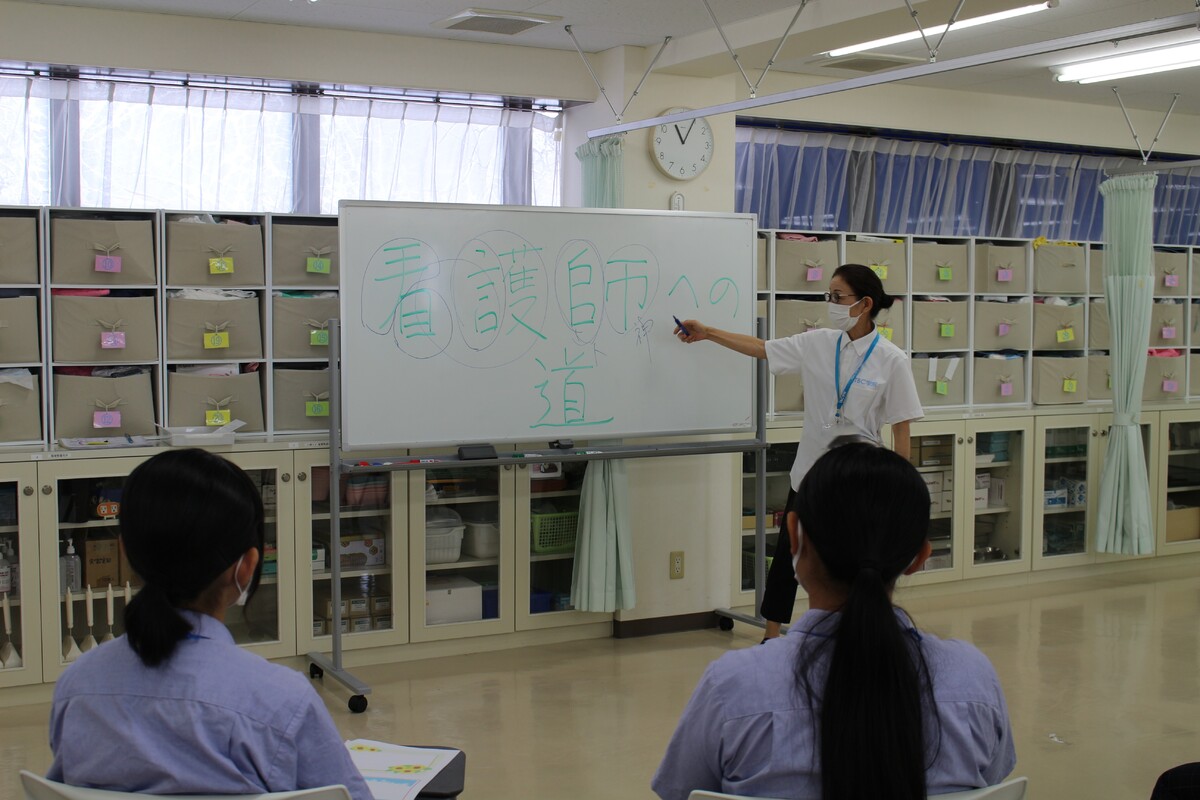 看護師への
道